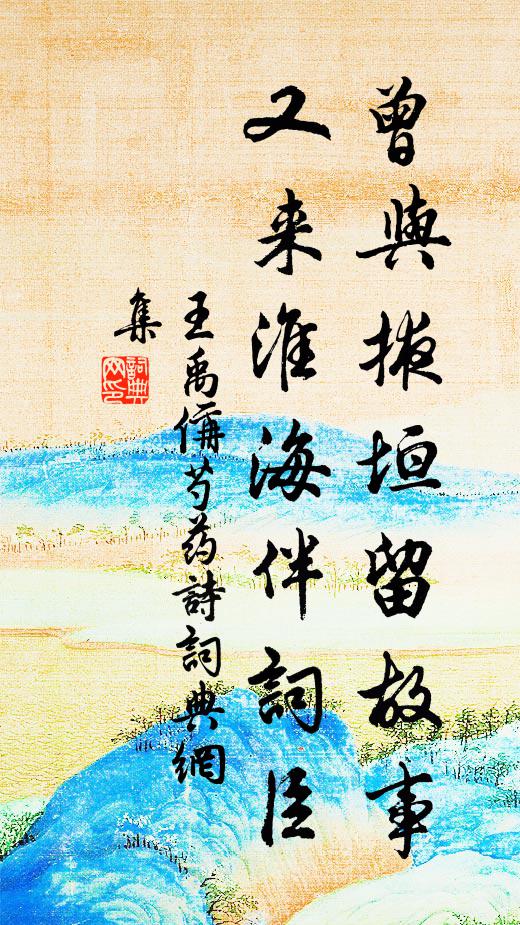 曾與掖垣留故事
又来淮海伴詞臣
王禹偁芍药詩詞典網
集
詞典
网印